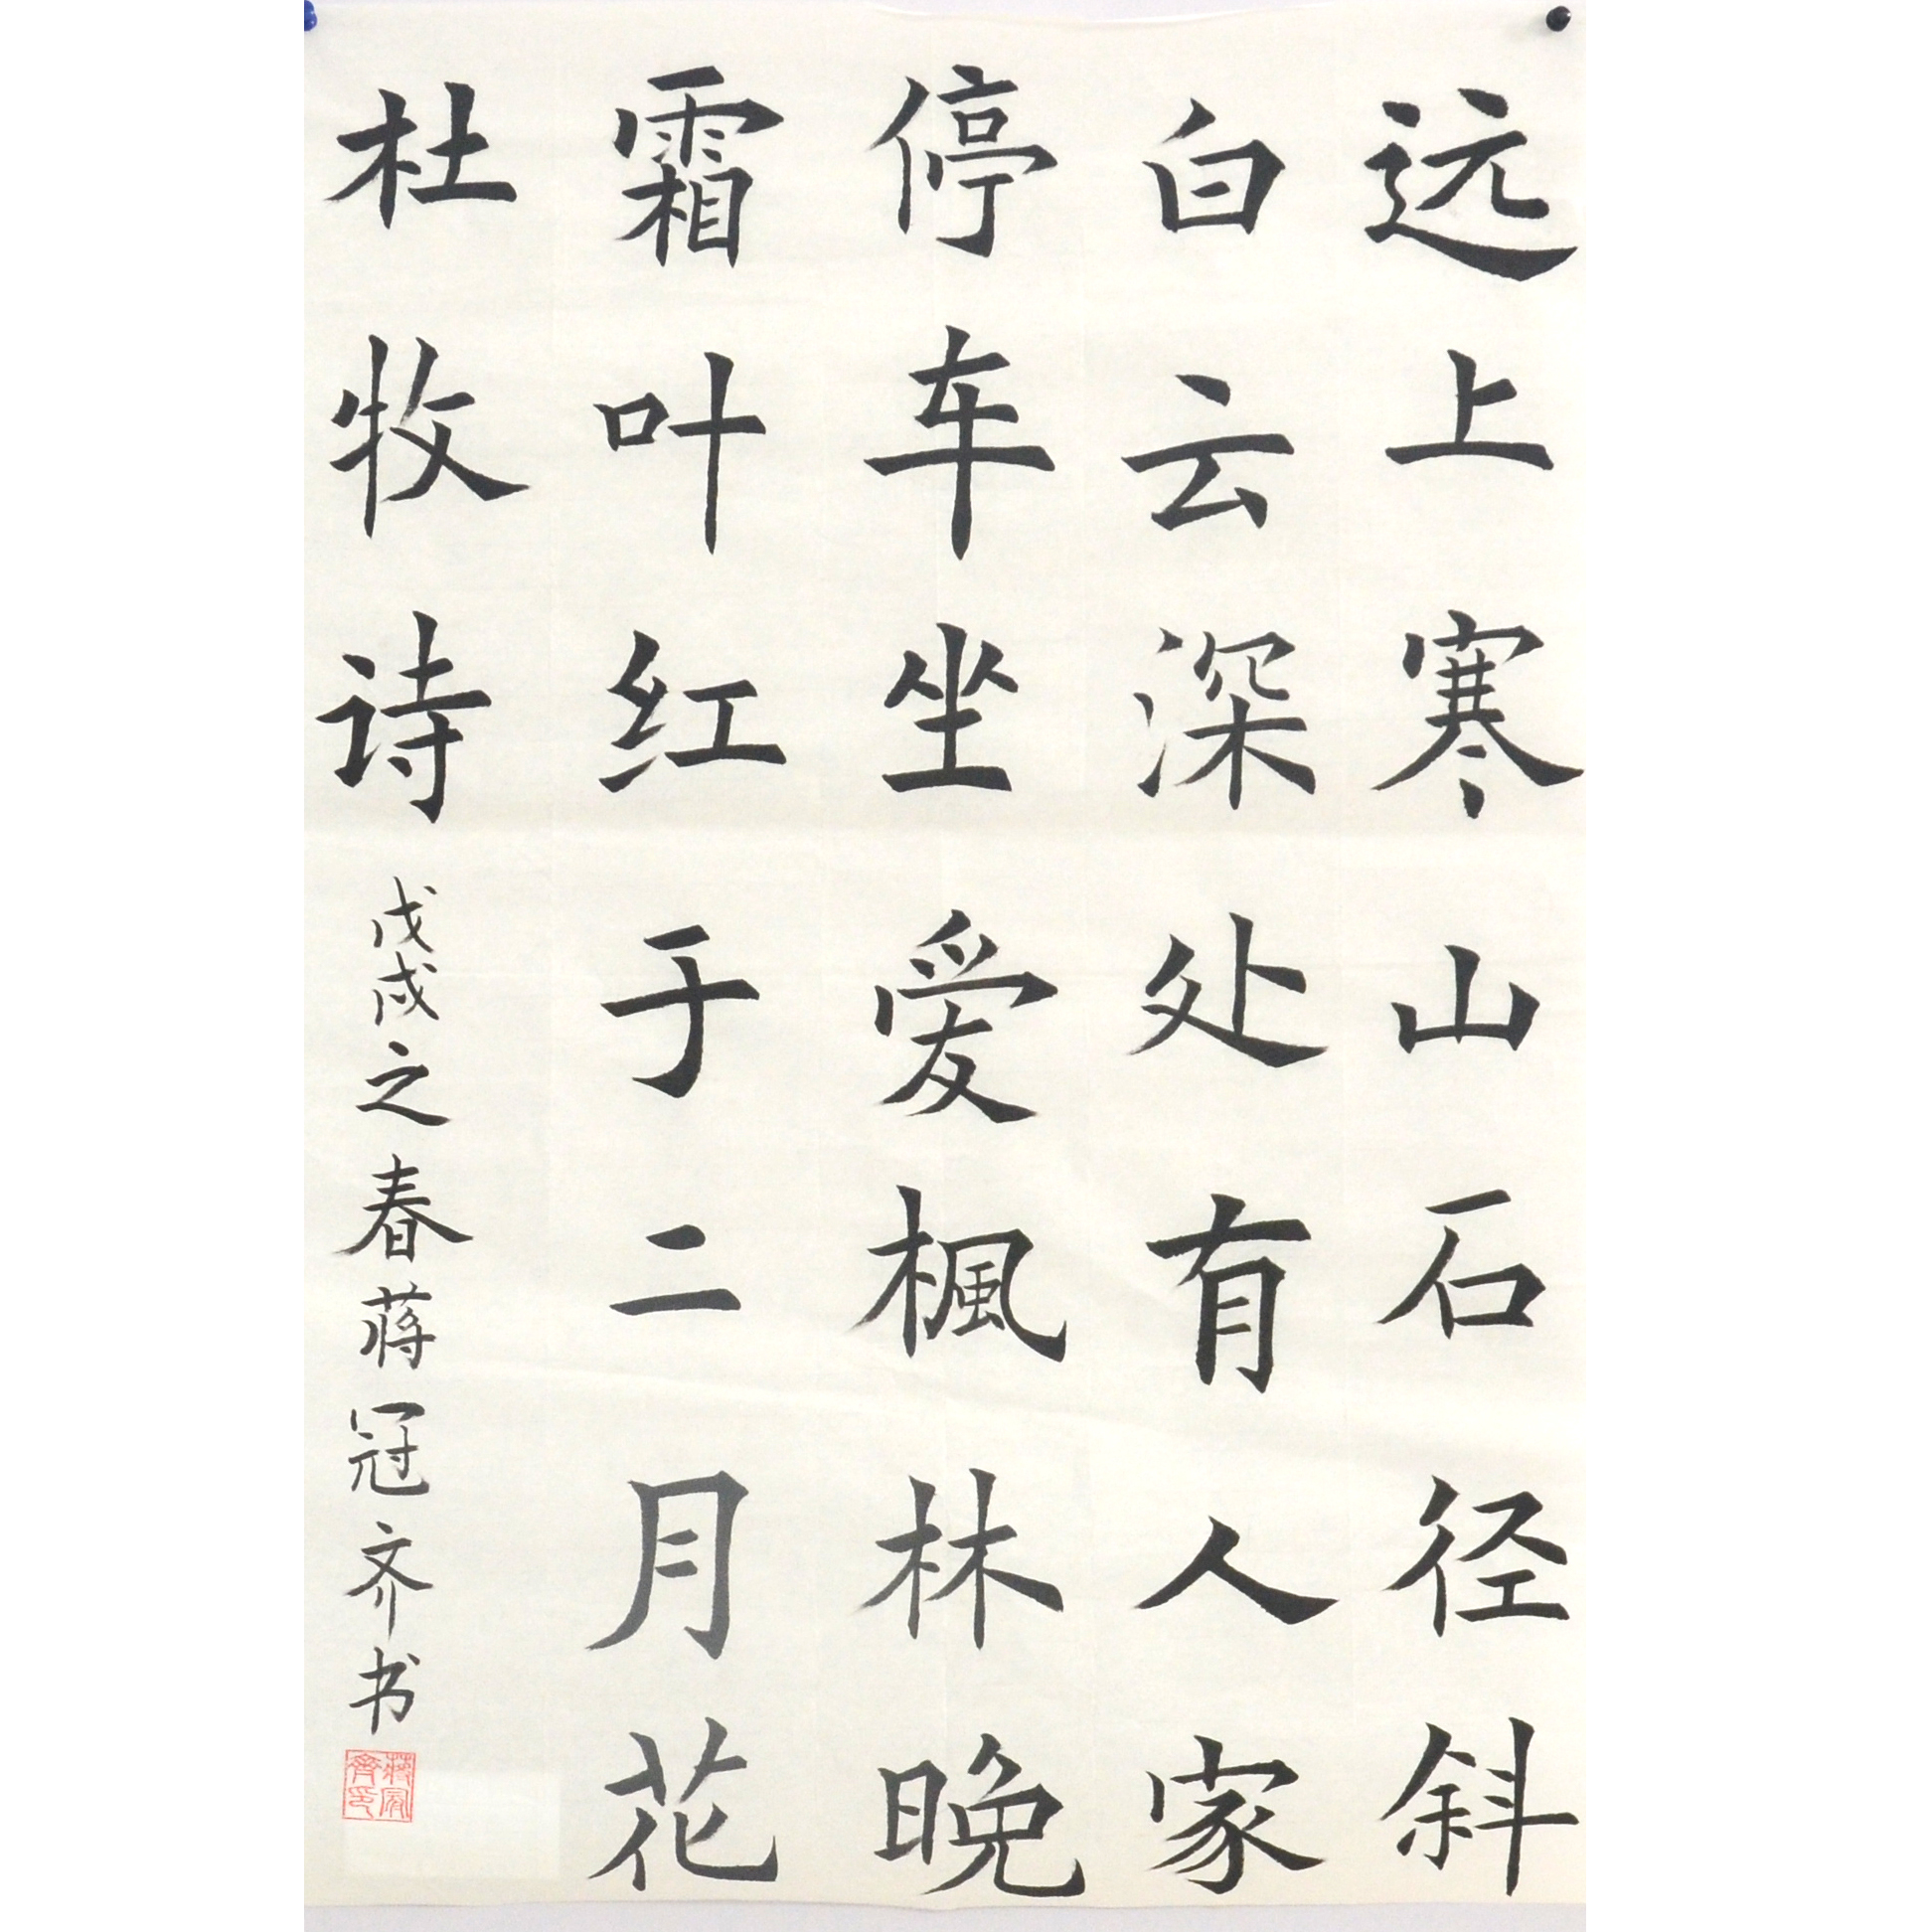 远上寒山石径斜
白云深处有人家
停车坐爱楓林晚
霜叶红于二月花
杜牧诗 戊戌之春蒋冠齐书
蒋冠齊印